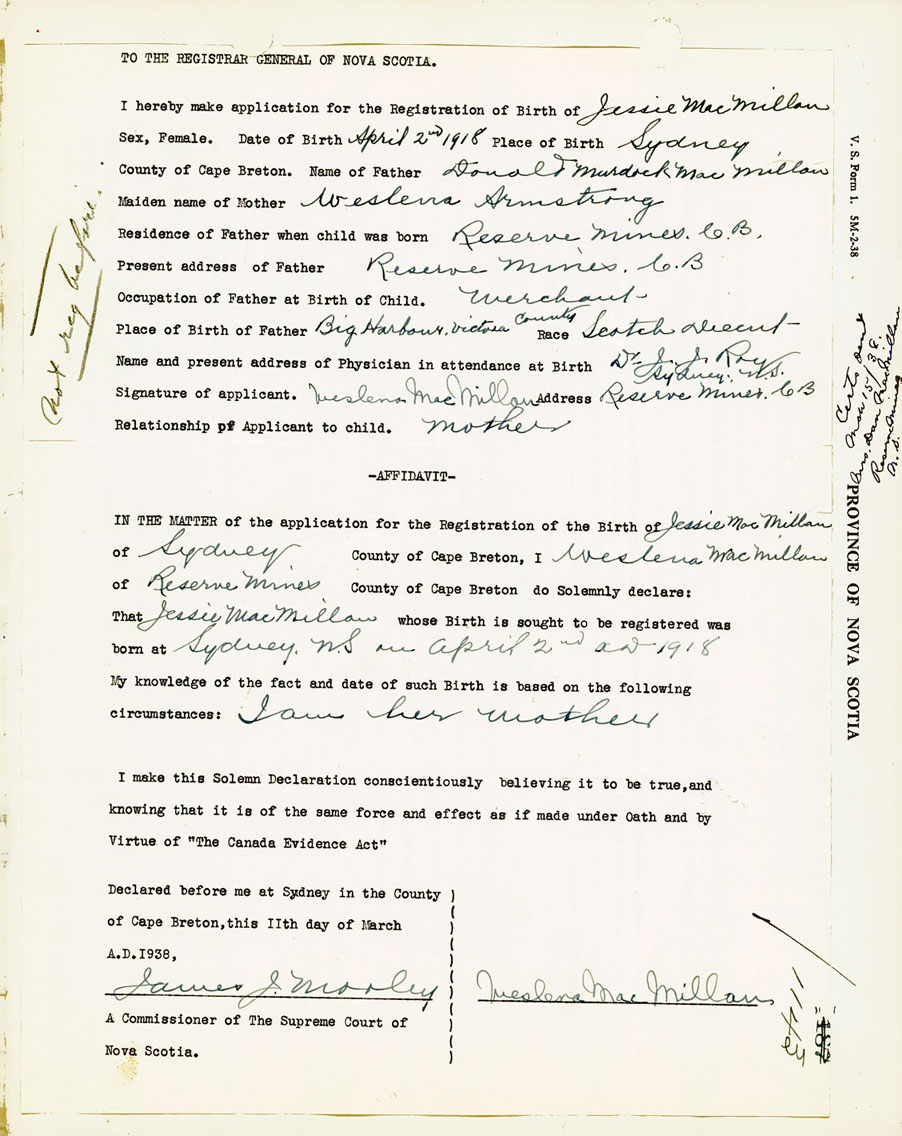 TO THE REGISTRAR GENERAL OF NOVA SCOTIA.
I hereby make application for the Registration of Birth of Jessie MacMillan
Sex, Female. Date of Birth April 2nd 1918 Place of Birth Sydney
County of Cape Breton. Name of Father Donald Murdock MacMillan
Maiden name of Mother Weslena Armstrong
Residence of Father when child was born Reserve Mines. C.B.
Present address of Father Reserve Mines. C.B
Occupation of Father at Birth of Child. Merchant
Place of Birth of Father Big Harbour, Victoria County Race Scotch decent
Name and present address of Physician in attendance at Birth Dr. J. J. Roy
Sydney. N.S.
Signature of applicant. Weslena MacMillan Address Reserve Mines. C.B
Relationship of Applicant to child. Mother
-AFFIDAVIT-
IN THE MATTER of the application for the Registration of the Birth of Jessie MacMillan
of Sydney County of Cape Breton, I Weslena MacMillan
of Reserve Mines County of Cape Breton do Solemnly declare:
That Jessie MacMillan whose Birth is sought to be registered was
born at Sydney. N.S on April 2nd AD 1918
My knowledge of the fact and date of such Birth is based on the following
circumstances: I am her mother
I make this Solemn Declaration conscientiously believing it to be true,and
knowing that it is of the same force and effect as if made under Oath and by
Virtue of "The Canada Evidence Act"
Declared before me at Sydney in the County )
of Cape Breton,this IIth day of March
A.D.I938,
James J. Morley Weslena MacMillan
A Commissioner of The Supreme Court of
Nova Scotia.
Not reg before.
V. S. Form 1. 5M-2-38
Reserve Mines
N.S.
PROVINCE OF NOVA SCOTIA